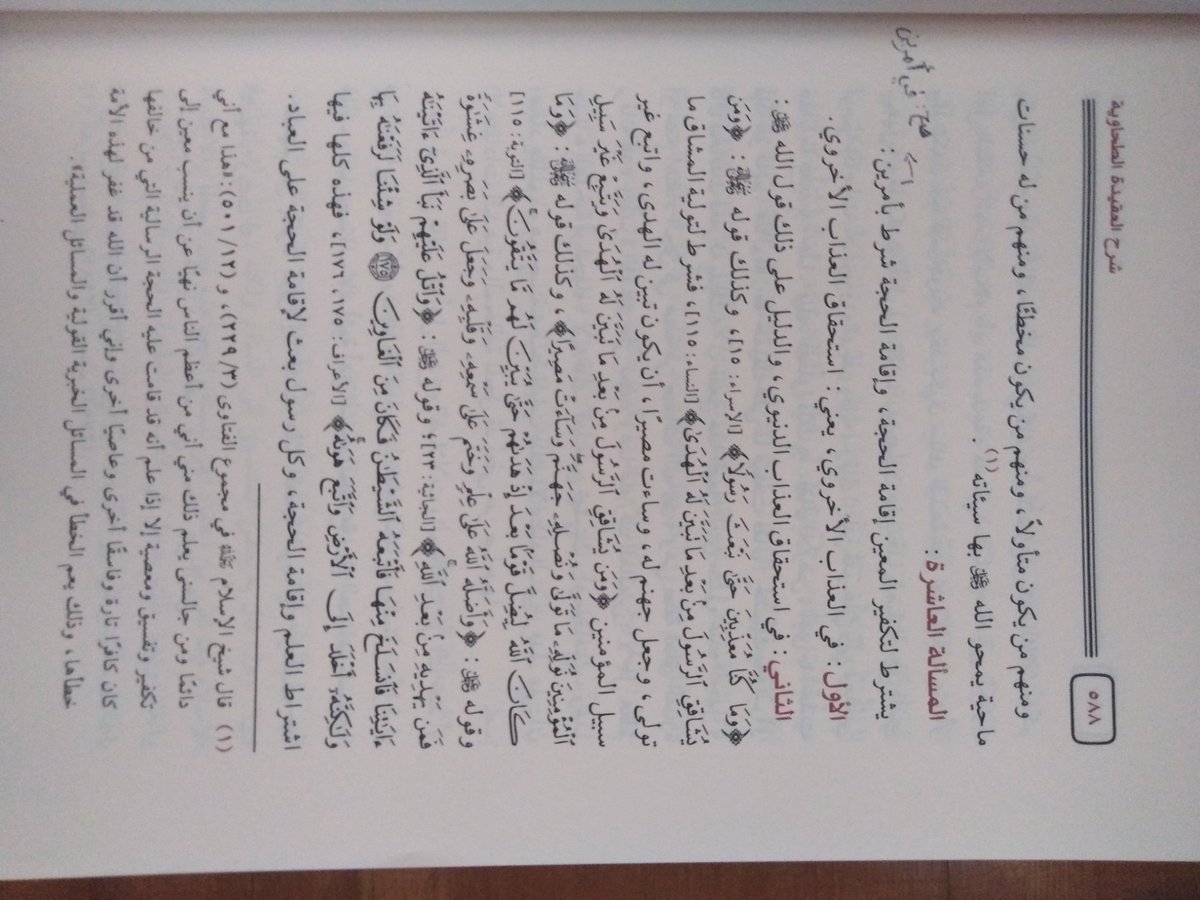 شرح العقيدة الطحاوية
٥٨٨
ومنهم من يكون متأولاً، ومنهم من يكون مخطئًا، ومنهم من له حسنات
ماحية يمحو الله ﷻ بها سيئاته(١).
المسألة العاشرة:
صح: في أمرين
يشترط لتكفير المعين إقامة الحجة، وإقامة الحجة شرط بأمرين:
الأول: في العذاب الأخروي، يعني: استحقاق العذاب الأخروي.
الثاني: في استحقاق العذاب الدنيوي، والدليل على ذلك قول الله ﷻ:
﴿وَمَا كُنَّا مُعَذِّبِينَ حَتَّىٰ نَبْعَثَ رَسُولًا﴾ [الإسراء: ١٥]، وكذلك قوله ﷻ: ﴿وَمَن
يُشَاقِقِ ٱلرَّسُولَ مِنۢ بَعْدِ مَا تَبَيَّنَ لَهُ ٱلْهُدَىٰ﴾ [النساء: ١١٥]، فشرط لتولية المشاق ما
تولى، وجعل جهنم له، وساءت مصيرًا، أن يكون تبين له الهدى، واتبع غير
سبيل المؤمنين ﴿وَمَن يُشَاقِقِ ٱلرَّسُولَ مِنۢ بَعْدِ مَا تَبَيَّنَ لَهُ ٱلْهُدَىٰ وَيَتَّبِعْ غَيْرَ سَبِيلِ
ٱلْمُؤْمِنِينَ نُوَلِّهِۦ مَا تَوَلَّىٰ وَنُصْلِهِۦ جَهَنَّمَ وَسَآءَتْ مَصِيرًا﴾، وكذلك قوله ﷻ: ﴿وَمَا
كَانَ ٱللَّهُ لِيُضِلَّ قَوْمًۢا بَعْدَ إِذْ هَدَىٰهُمْ حَتَّىٰ يُبَيِّنَ لَهُم مَّا يَتَّقُونَ﴾ [التوبة: ١١٥]
وقوله ﷻ: ﴿وَأَضَلَّهُ ٱللَّهُ عَلَىٰ عِلْمٍ وَخَتَمَ عَلَىٰ سَمْعِهِۦ وَقَلْبِهِۦ وَجَعَلَ عَلَىٰ بَصَرِهِۦ غِشَٰوَةً
فَمَن يَهْدِيهِ مِنۢ بَعْدِ ٱللَّهِ﴾ [الجاثية: ٢٣]؛ وقوله ﷻ: ﴿وَٱتْلُ عَلَيْهِمْ نَبَأَ ٱلَّذِىٓ ءَاتَيْنَٰهُ
ءَايَٰتِنَا فَٱنسَلَخَ مِنْهَا فَأَتْبَعَهُ ٱلشَّيْطَٰنُ فَكَانَ مِنَ ٱلْغَاوِينَ ۝١٧٥ وَلَوْ شِئْنَا لَرَفَعْنَٰهُ بِهَا
وَلَٰكِنَّهُۥٓ أَخْلَدَ إِلَى ٱلْأَرْضِ وَٱتَّبَعَ هَوَىٰهُ﴾ [الأعراف: ١٧٥، ١٧٦]، فهذه كلها فيها
اشتراط العلم وإقامة الحجة، وكل رسول بعث لإقامة الحجة على العباد.
(١) قال شيخ الإسلام رحمه الله في مجموع الفتاوى (٣/ ٢٢٩)، و (١٢/ ٥٠١): «هذا مع أني
دائمًا ومن جالسني يعلم ذلك مني أني من أعظم الناس نهيًا عن أن ينسب معين إلى
تكفير وتفسيق ومعصية إلا إذا علم أنه قد قامت عليه الحجة الرسالية التي من خالفها
كان كافرًا تارة وفاسقًا أخرى وعاصيًا أخرى وإني أقرر أن الله قد غفر لهذه الأمة
خطأها، وذلك يعم الخطأ في المسائل الخبرية القولية والمسائل العملية».